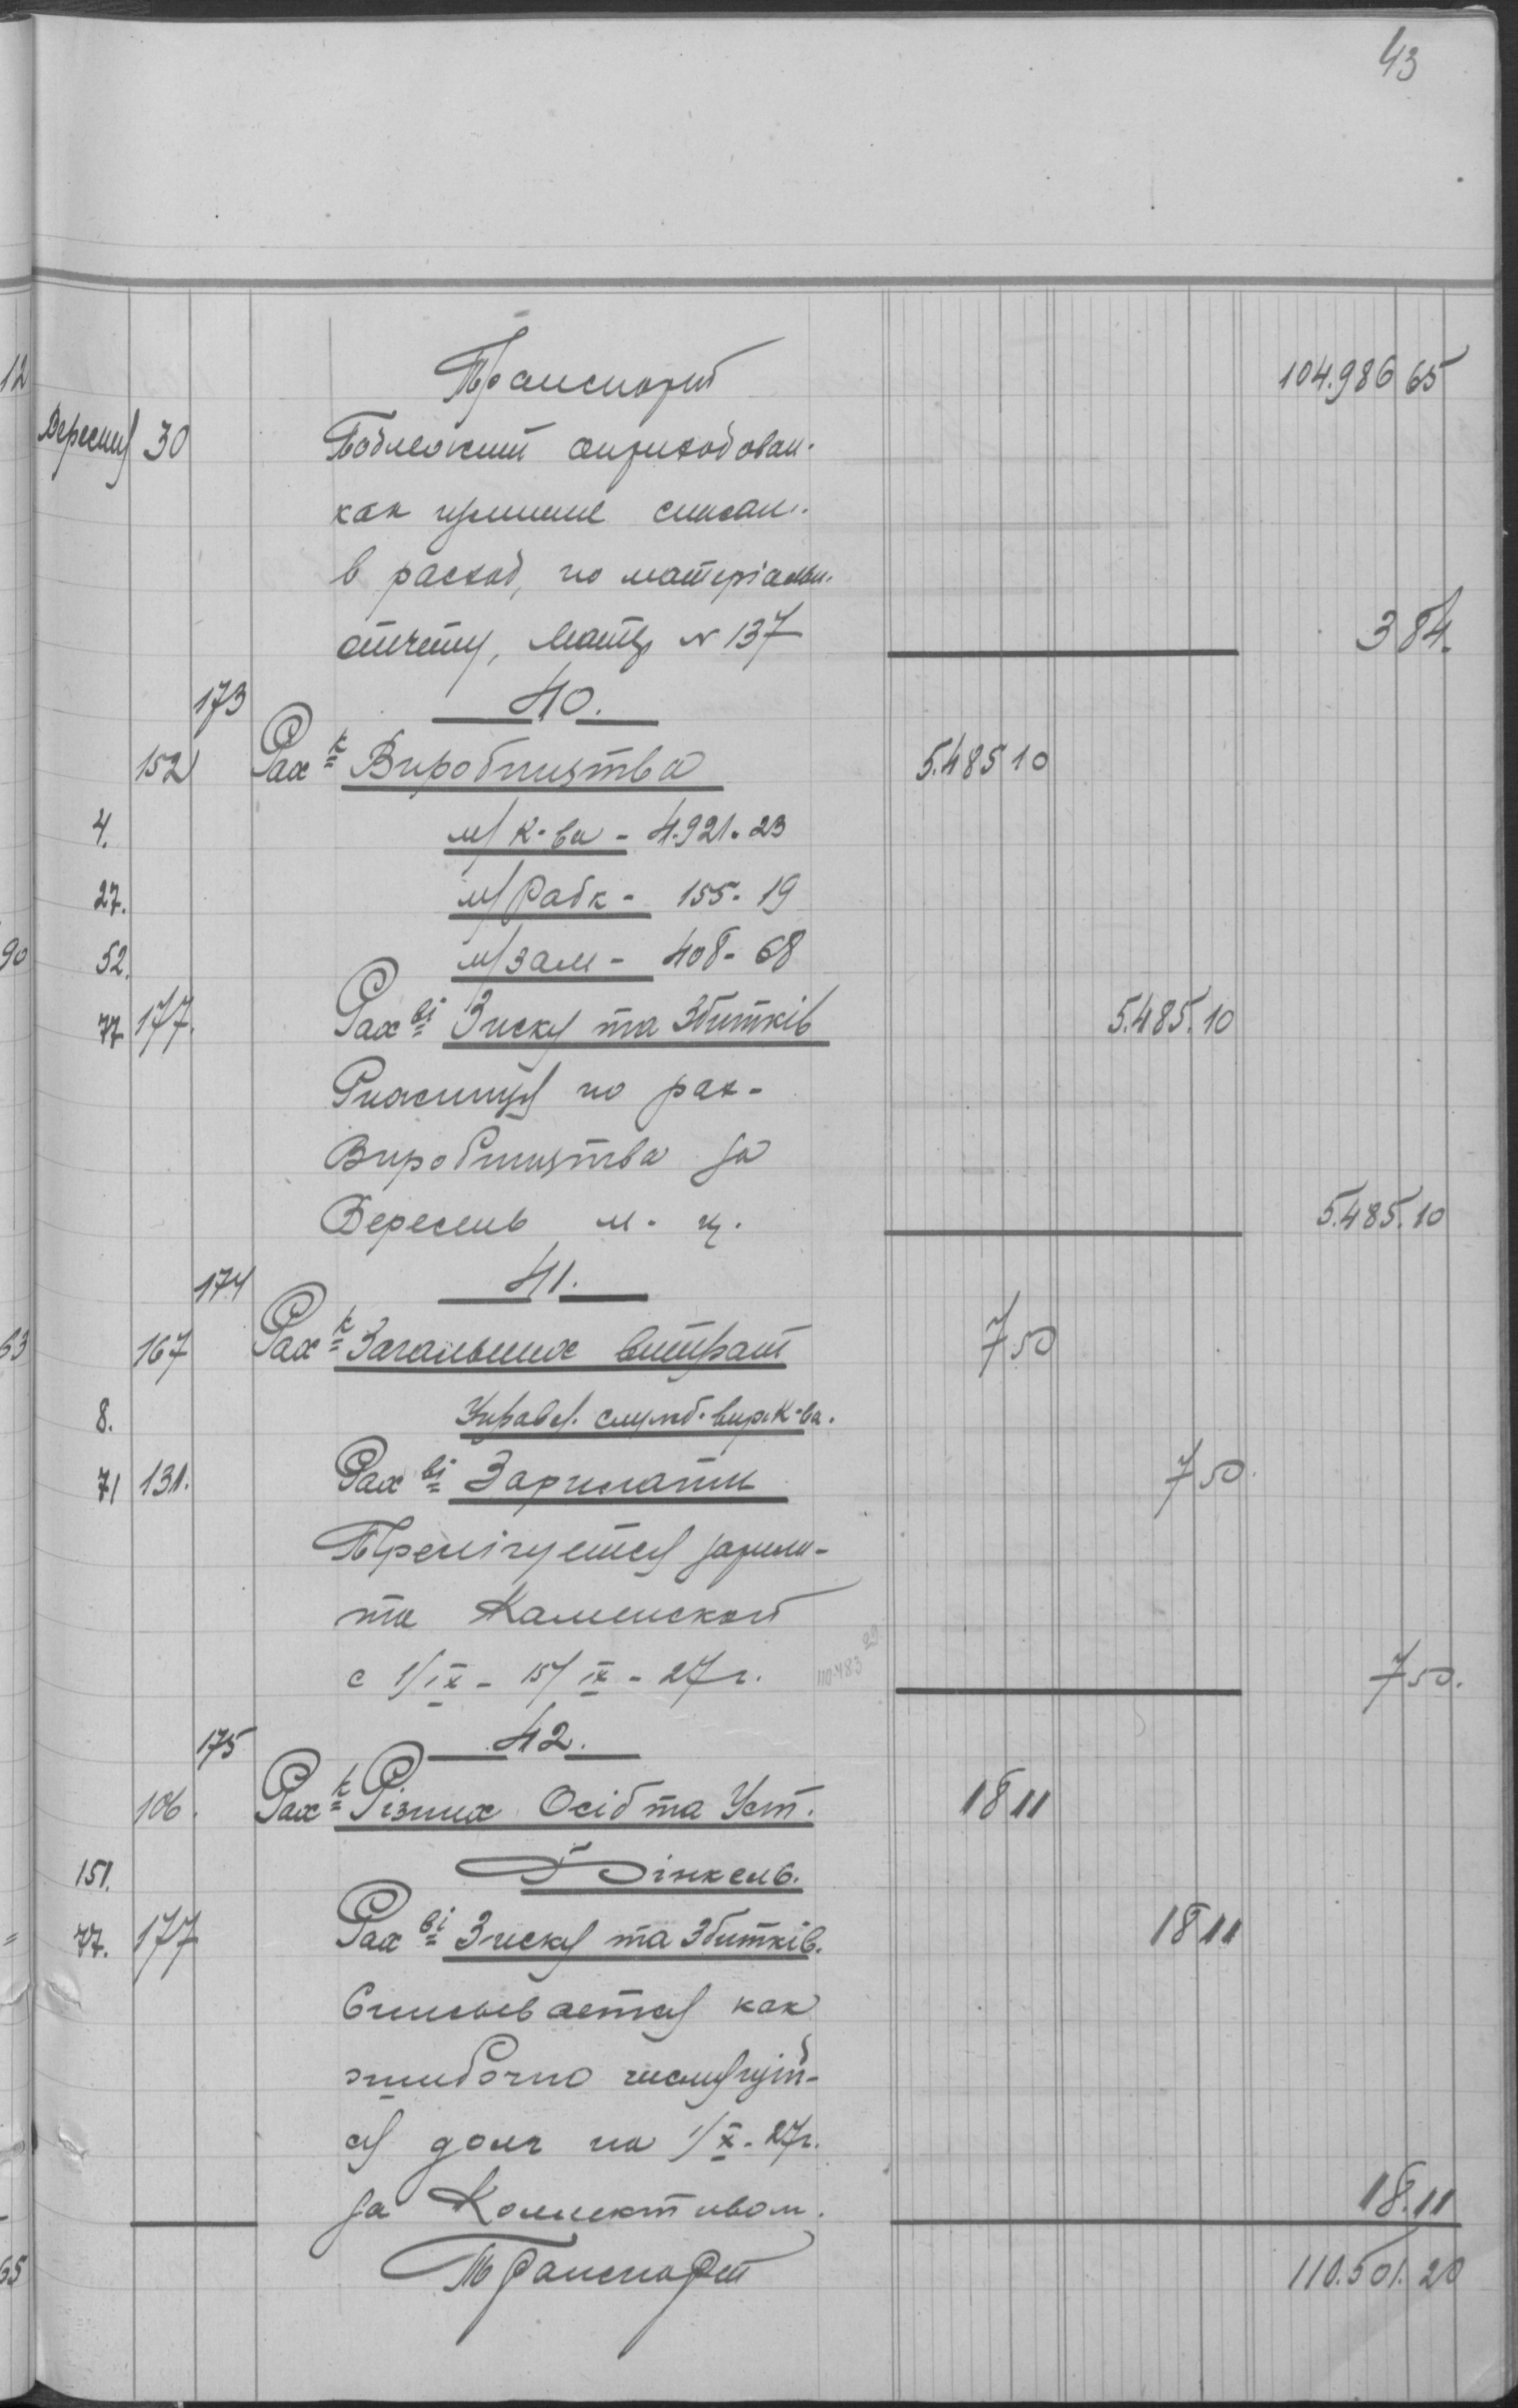 43
Транспорт 104.986 65
Вересня 30 Подлежит оприходован.
как излишне списан.
в расход, по матеріальн.
отчету, Матер N 137 3 84.
173 40.
152 Рах к Виробництва 5.485 10
4. м/ К-ва - 4.921. 23
27. м/ Рабк - 155. 19
52. м/ зам - 408. 68
77 177. Рах ві Зиску та Збитків 5.485. 10
по рах-
Виробництва за
Вересень м-ц. 5.485. 10
174 41.
167 Рах к Загальних витрат 7 50
8. Управл. служб. вир. К-ва.
71 131. Рах ві Зарплати 7 50.
зарпла-
та Каменской
с 1/IX - 15/IX - 27 г. 110.483 29 7 50.
175 42.
106. Рах к Різних Осіб та Уст. 18 11
151. Фінкель.
77. 177 Рах ві Зиску та Збитків. 18 11
Списывается как
ошибочно числящій-
ся долг на 1/X - 27 г.
за Коллективом. 18. 11
Транспорт 110.501. 20